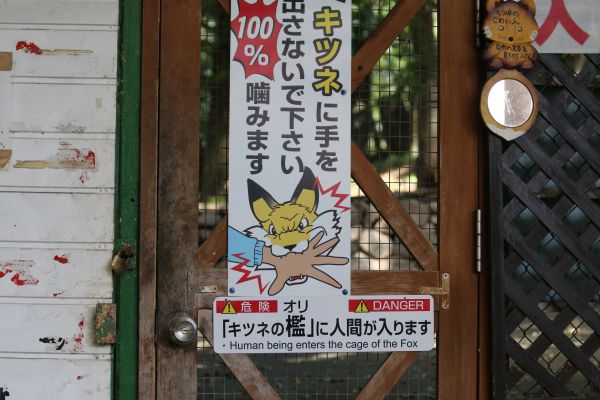 キツネに手を
出さないで下さい
100%
噛みます
危険
オリ
DANGER
「キツネの檻」に人間が入ります
・Human being enters the cage of the Fox